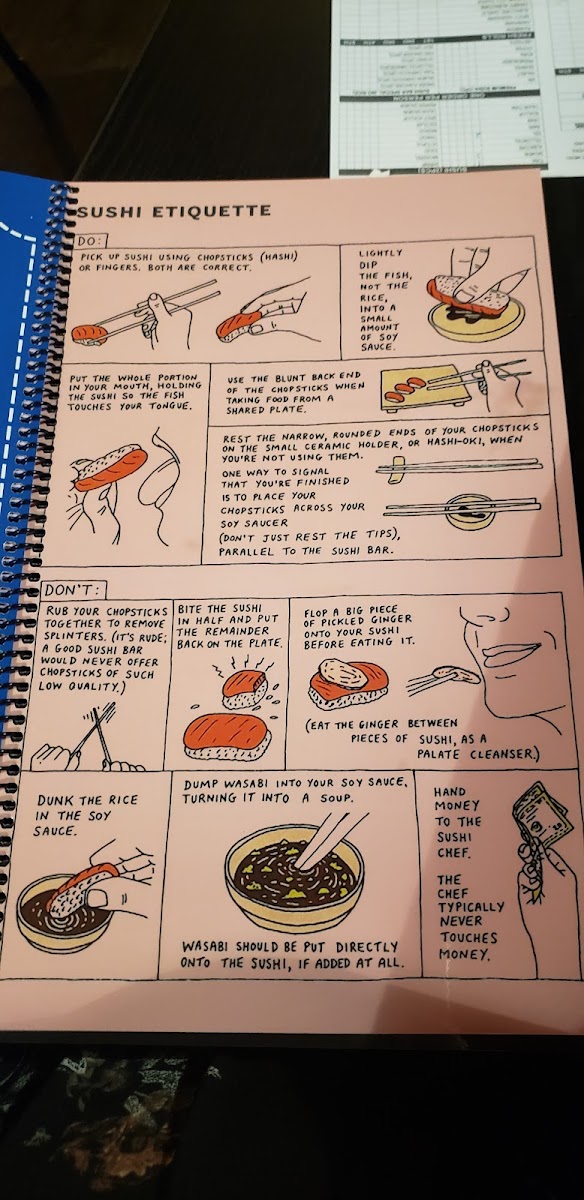 FRESH ROLLS
ONE ORDER PER PERSON
SUSHI (2PCS)
SUSHI ETIQUETTE
DO:
PICK UP SUSHI USING CHOPSTICKS (HASHI)
OR FINGERS. BOTH ARE CORRECT.
LIGHTLY
DIP
THE FISH,
NOT THE
RICE,
INTO A
SMALL
AMOUNT
OF SOY
SAUCE.
PUT THE WHOLE PORTION
IN YOUR MOUTH, HOLDING
THE SUSHI SO THE FISH
TOUCHES YOUR TONGUE.
USE THE BLUNT BACK END
OF THE CHOPSTICKS WHEN
TAKING FOOD FROM A
SHARED PLATE.
REST THE NARROW, ROUNDED ENDS OF YOUR CHOPSTICKS
ON THE SMALL CERAMIC HOLDER, OR HASHI-OKI, WHEN
YOU'RE NOT USING THEM.
ONE WAY TO SIGNAL
THAT YOU'RE FINISHED
IS TO PLACE YOUR
CHOPSTICKS ACROSS YOUR
SOY SAUCER
(DON'T JUST REST THE TIPS),
PARALLEL TO THE SUSHI BAR.
DON'T:
RUB YOUR CHOPSTICKS
TOGETHER TO REMOVE
SPLINTERS. (IT'S RUDE;
A GOOD SUSHI BAR
WOULD NEVER OFFER
CHOPSTICKS OF SUCH
LOW QUALITY.)
BITE THE SUSHI
IN HALF AND PUT
THE REMAINDER
BACK ON THE PLATE.
FLOP A BIG PIECE
OF PICKLED GINGER
ONTO YOUR SUSHI
BEFORE EATING IT.
(EAT THE GINGER BETWEEN
PIECES OF SUSHI, AS A
PALATE CLEANSER.)
DUNK THE RICE
IN THE SOY
SAUCE.
DUMP WASABI INTO YOUR SOY SAUCE,
TURNING IT INTO A SOUP.
WASABI SHOULD BE PUT DIRECTLY
ONTO THE SUSHI, IF ADDED AT ALL.
HAND
MONEY
TO THE
SUSHI
CHEF.
THE
CHEF
TYPICALLY
NEVER
TOUCHES
MONEY.